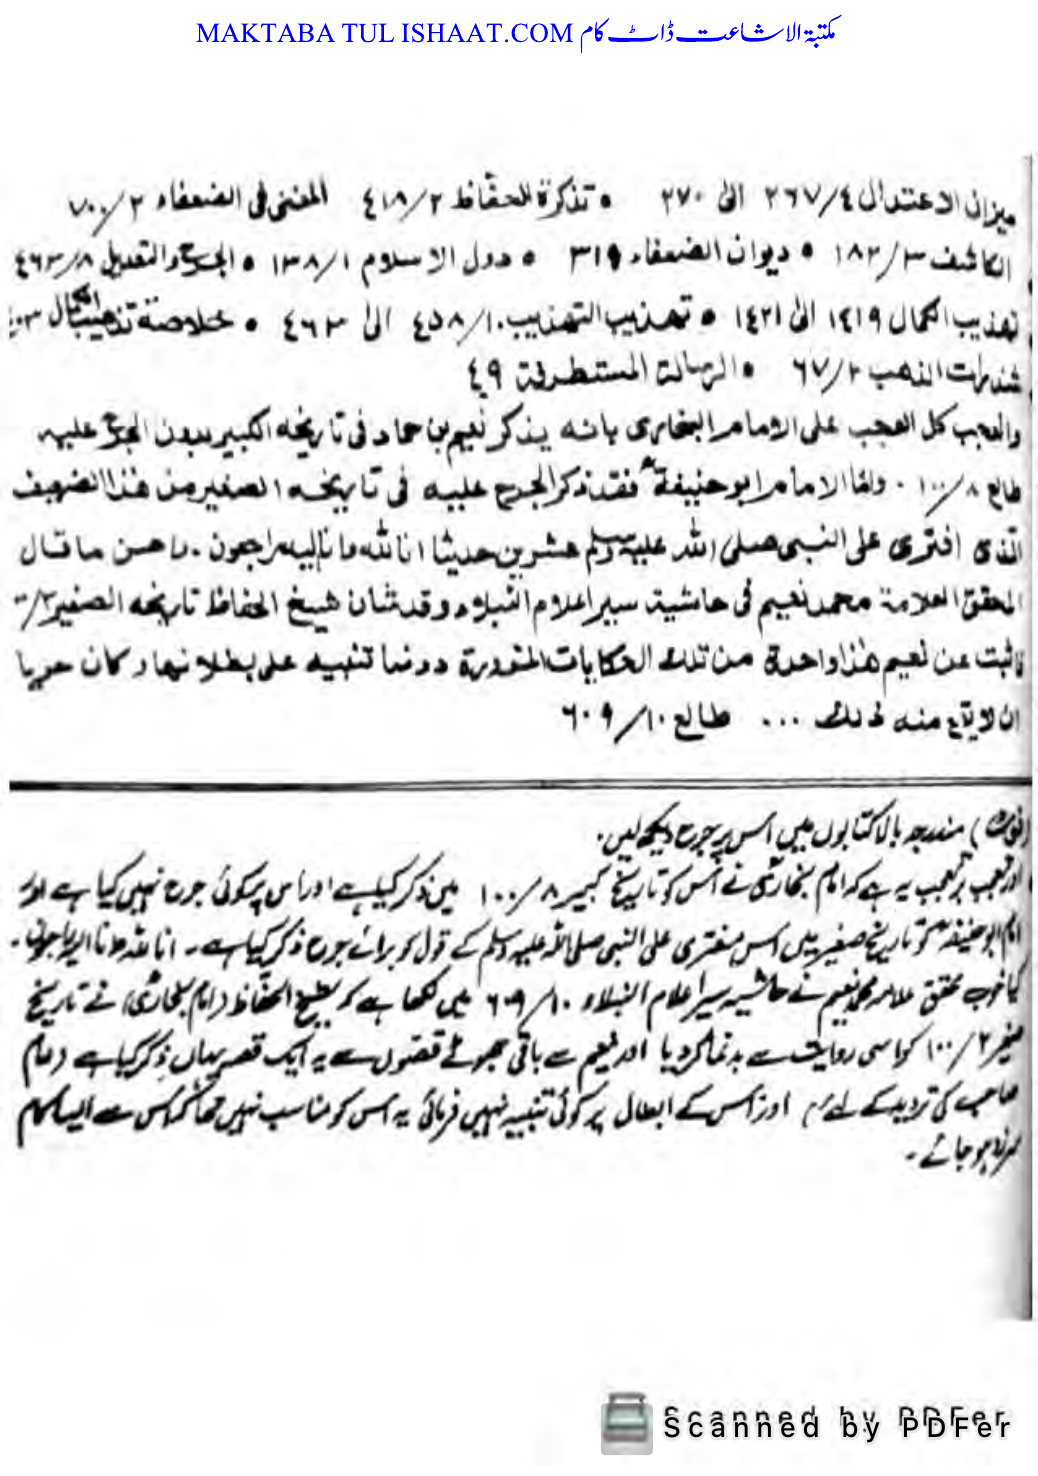 MAKTABA TUL ISHAAT.COM مکتبۃ الاشاعت ڈاٹ کام
میزان الاعتدال ٢٦٧/٤ الی ٢٧٠ • تذکرۃ الحفاظ ٤١٨/٢ المغنی فی الضعفاء ٧٠٠/٢
الکاشف ١٨٢/٣ • دیوان الضعفاء ٣١٩ • دول الاسلام ١٣٨/١ • الجرح والتعدیل ٤٦٣/٨
تهذیب الکمال ١٤١٩ الی ١٤٢١ • تهذیب التهذیب ٤٥٨/١٠ الی ٤٦٣ • خلاصة تذهیب الکمال
شذرات الذهب ٦٧/٢ • الرسالة المستطرفة ٤٩
والعجب کل العجب علی الامام البخاری بانه یذکر نعیم بن حماد فی تاریخه الکبیر بدون الجرح علیه
طالع ١٠٠/٨ ۔ الامام ابو حنیفة فقد ذکر الجرح علیه فی تاریخه الصغیر من هذا الضعیف
الذی افتری علی النبی صلی الله علیه وسلم عشرین حدیثا انا لله وانا الیه راجعون ۔ ما قال
المحقق العلامة محمد نعیم فی حاشیة سیر اعلام النبلاء وقد شان شیخ الحفاظ تاریخه الصغیر
عن نعیم هذا واحدة من تلک الحکایات المزورة دونما تنبیه علی بطلانها وکان حریا
ان لا یقع منه ذلک ... طالع ٦٠٩/١٠
(نوٹ) مندرجہ بالا کتابوں میں اس پر جرح دیکھ لیں ۔
اور تعجب بر تعجب یہ ہے کہ امام بخاریؒ نے اس کو تاریخ کبیر ١٠٠/٨ میں ذکر کیا ہے اور اس پر کوئی جرح نہیں کیا ہے اور
امام ابو حنیفہؒ کو تاریخ صغیر میں اس مفتری علی النبی صلی اللہ علیہ وسلم کے قول کو برائے جرح ذکر کیا ہے ۔ انا للہ وانا الیہ راجعون ۔
کیا خوب محقق علامہ محمد نعیم نے حاشیہ سیر اعلام النبلاء ٦٠٩/١٠ میں لکھا ہے کہ شیخ الحفاظ (امام بخاریؒ) نے تاریخ
صغیر ١٠٠/٢ کو اسی روایت سے بدنما کر دیا اور نعیم سے باقی جھوٹے قصوں سے یہ ایک قصہ یہاں ذکر کیا ہے (امام
صاحب کی تردید کے لئے) اور اس کے ابطال پر کوئی تنبیہ نہیں فرمائی یہ اس کو مناسب نہیں تھا کہ اس سے ایسا کام
سرزد ہو جائے ۔
Scanned by PDFer